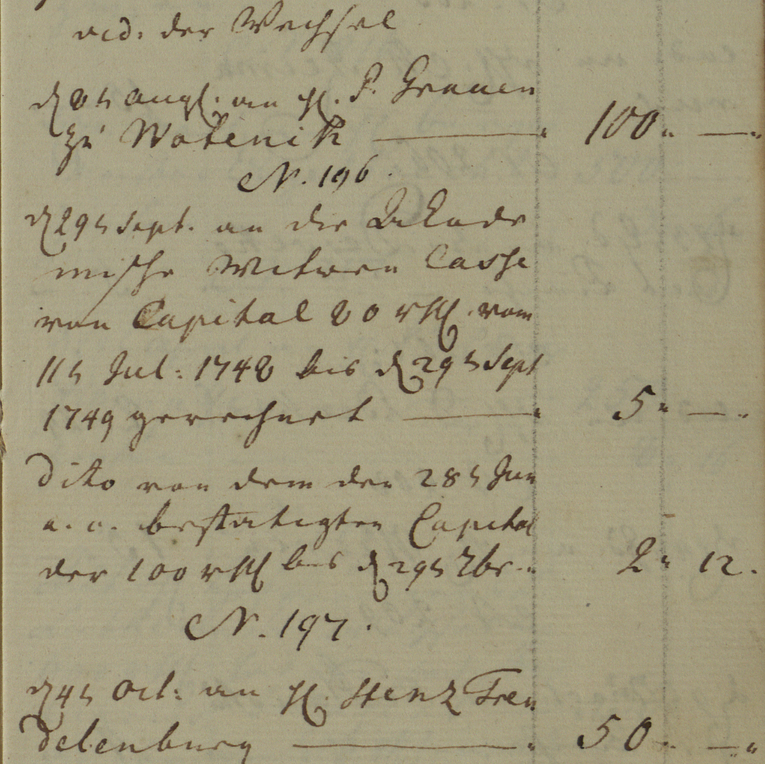 vid. der Wechsel
d 8t Augl. an H. P. Grauen
zu Wotenik — 100. —.
N. 196.
d 29t Sept. an die Akade
mische Witwen Casse
von Capital 80 rthl. vom
11t Jul: 1748 bis d 29t Sept
1749 gerechnet — 5. —.
Dito von dem den 28t Jun
a. c. bestätigten Capital
der 100 rthl bis d 29t 7br. 2. 12.
N. 197.
d 4t Oct: an H. Stenz Fren
delenburg — 50. —.